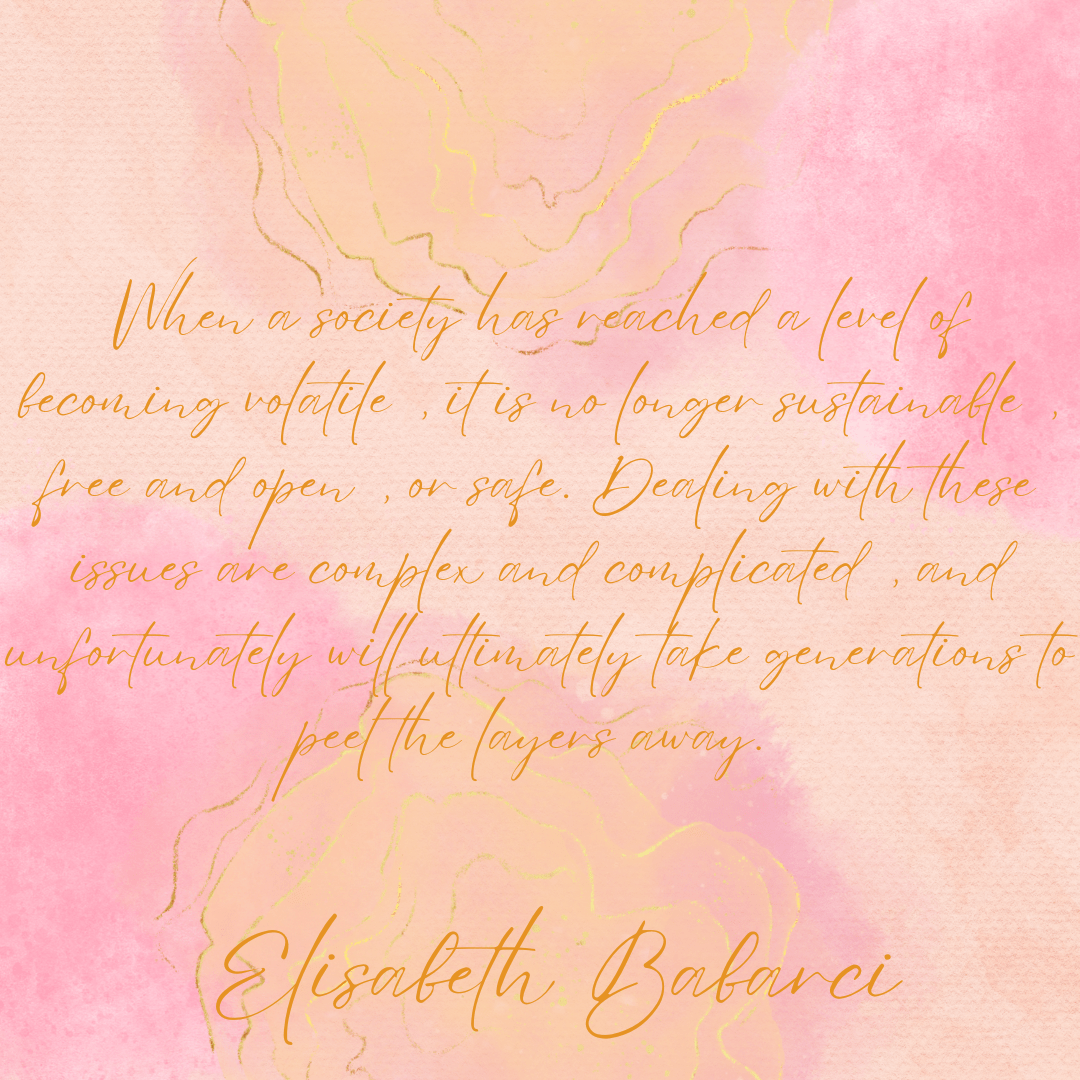 When a society has reached a level of
becoming volatile , it is no longer sustainable ,
free and open , or safe. Dealing with these
issues are complex and complicated , and
unfortunately will ultimately take generations to
peel the layers away.
Elisabeth Babarci